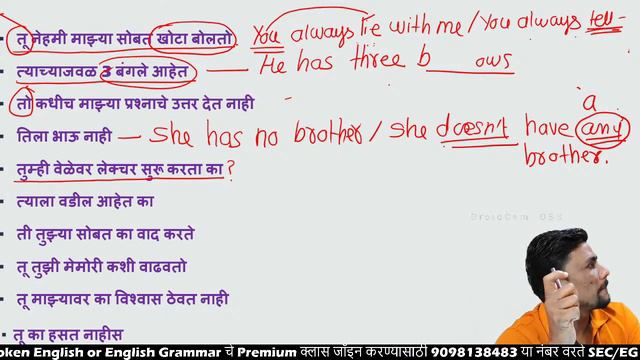 तू नेहमी माझ्या सोबत खोटा बोलतो You always lie with me / You always tell
त्याच्याजवळ 3 बंगले आहेत He has three b ows
तो कधीच माझ्या प्रश्नाचे उत्तर देत नाही
a
तिला भाऊ नाही — She has no brother / She doesn't have any
brother.
तुम्ही वेळेवर लेक्चर सुरू करता का ?
त्याला वडील आहेत का
DroidCam OBS
ती तुझ्या सोबत का वाद करते
तू तुझी मेमोरी कशी वाढवतो
तू माझ्यावर का विश्वास ठेवत नाही
तू का हसत नाहीस
oken English or English Grammar चे Premium क्लास जॉइन करण्यासाठी 9098138483 या नंबर वरते SEC/EG